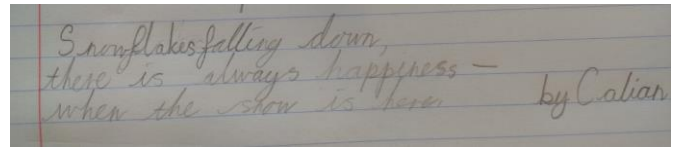 Snowflakes falling down,
there is always happiness —
when the snow is here.
by Calian